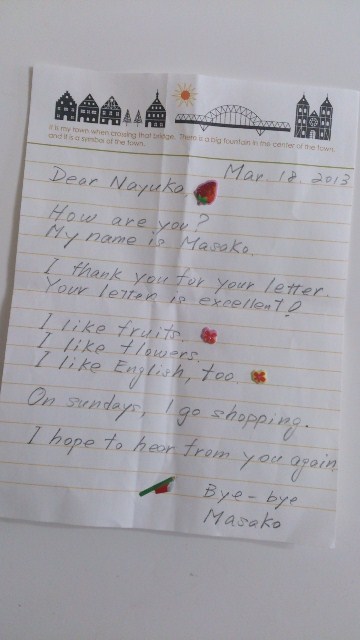 It is my town when crossing that bridge. There is a big fountain in the center of the town,
and it is a symbol of the town.
Mar. 18. 2013
Dear Nayuko,
How are you?
My name is Masako.
I thank you for your letter.
Your letter is excellent!
I like fruits.
I like flowers.
I like English, too.
On sundays, I go shopping.
I hope to hear from you again.
Bye-bye
Masako